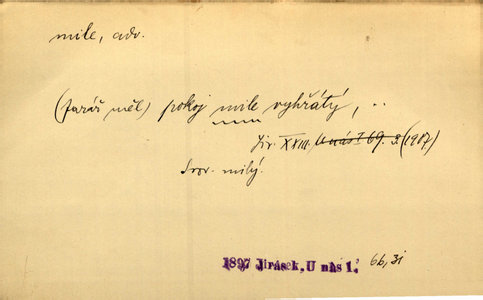 mile, adv.
(farář měl) pokoj mile vyhřátý, ..
Jir. XXIII. U nás I 69. 3. (1907)
Srov. milý.
1897 Jirásek, U nás 1. 66, 31